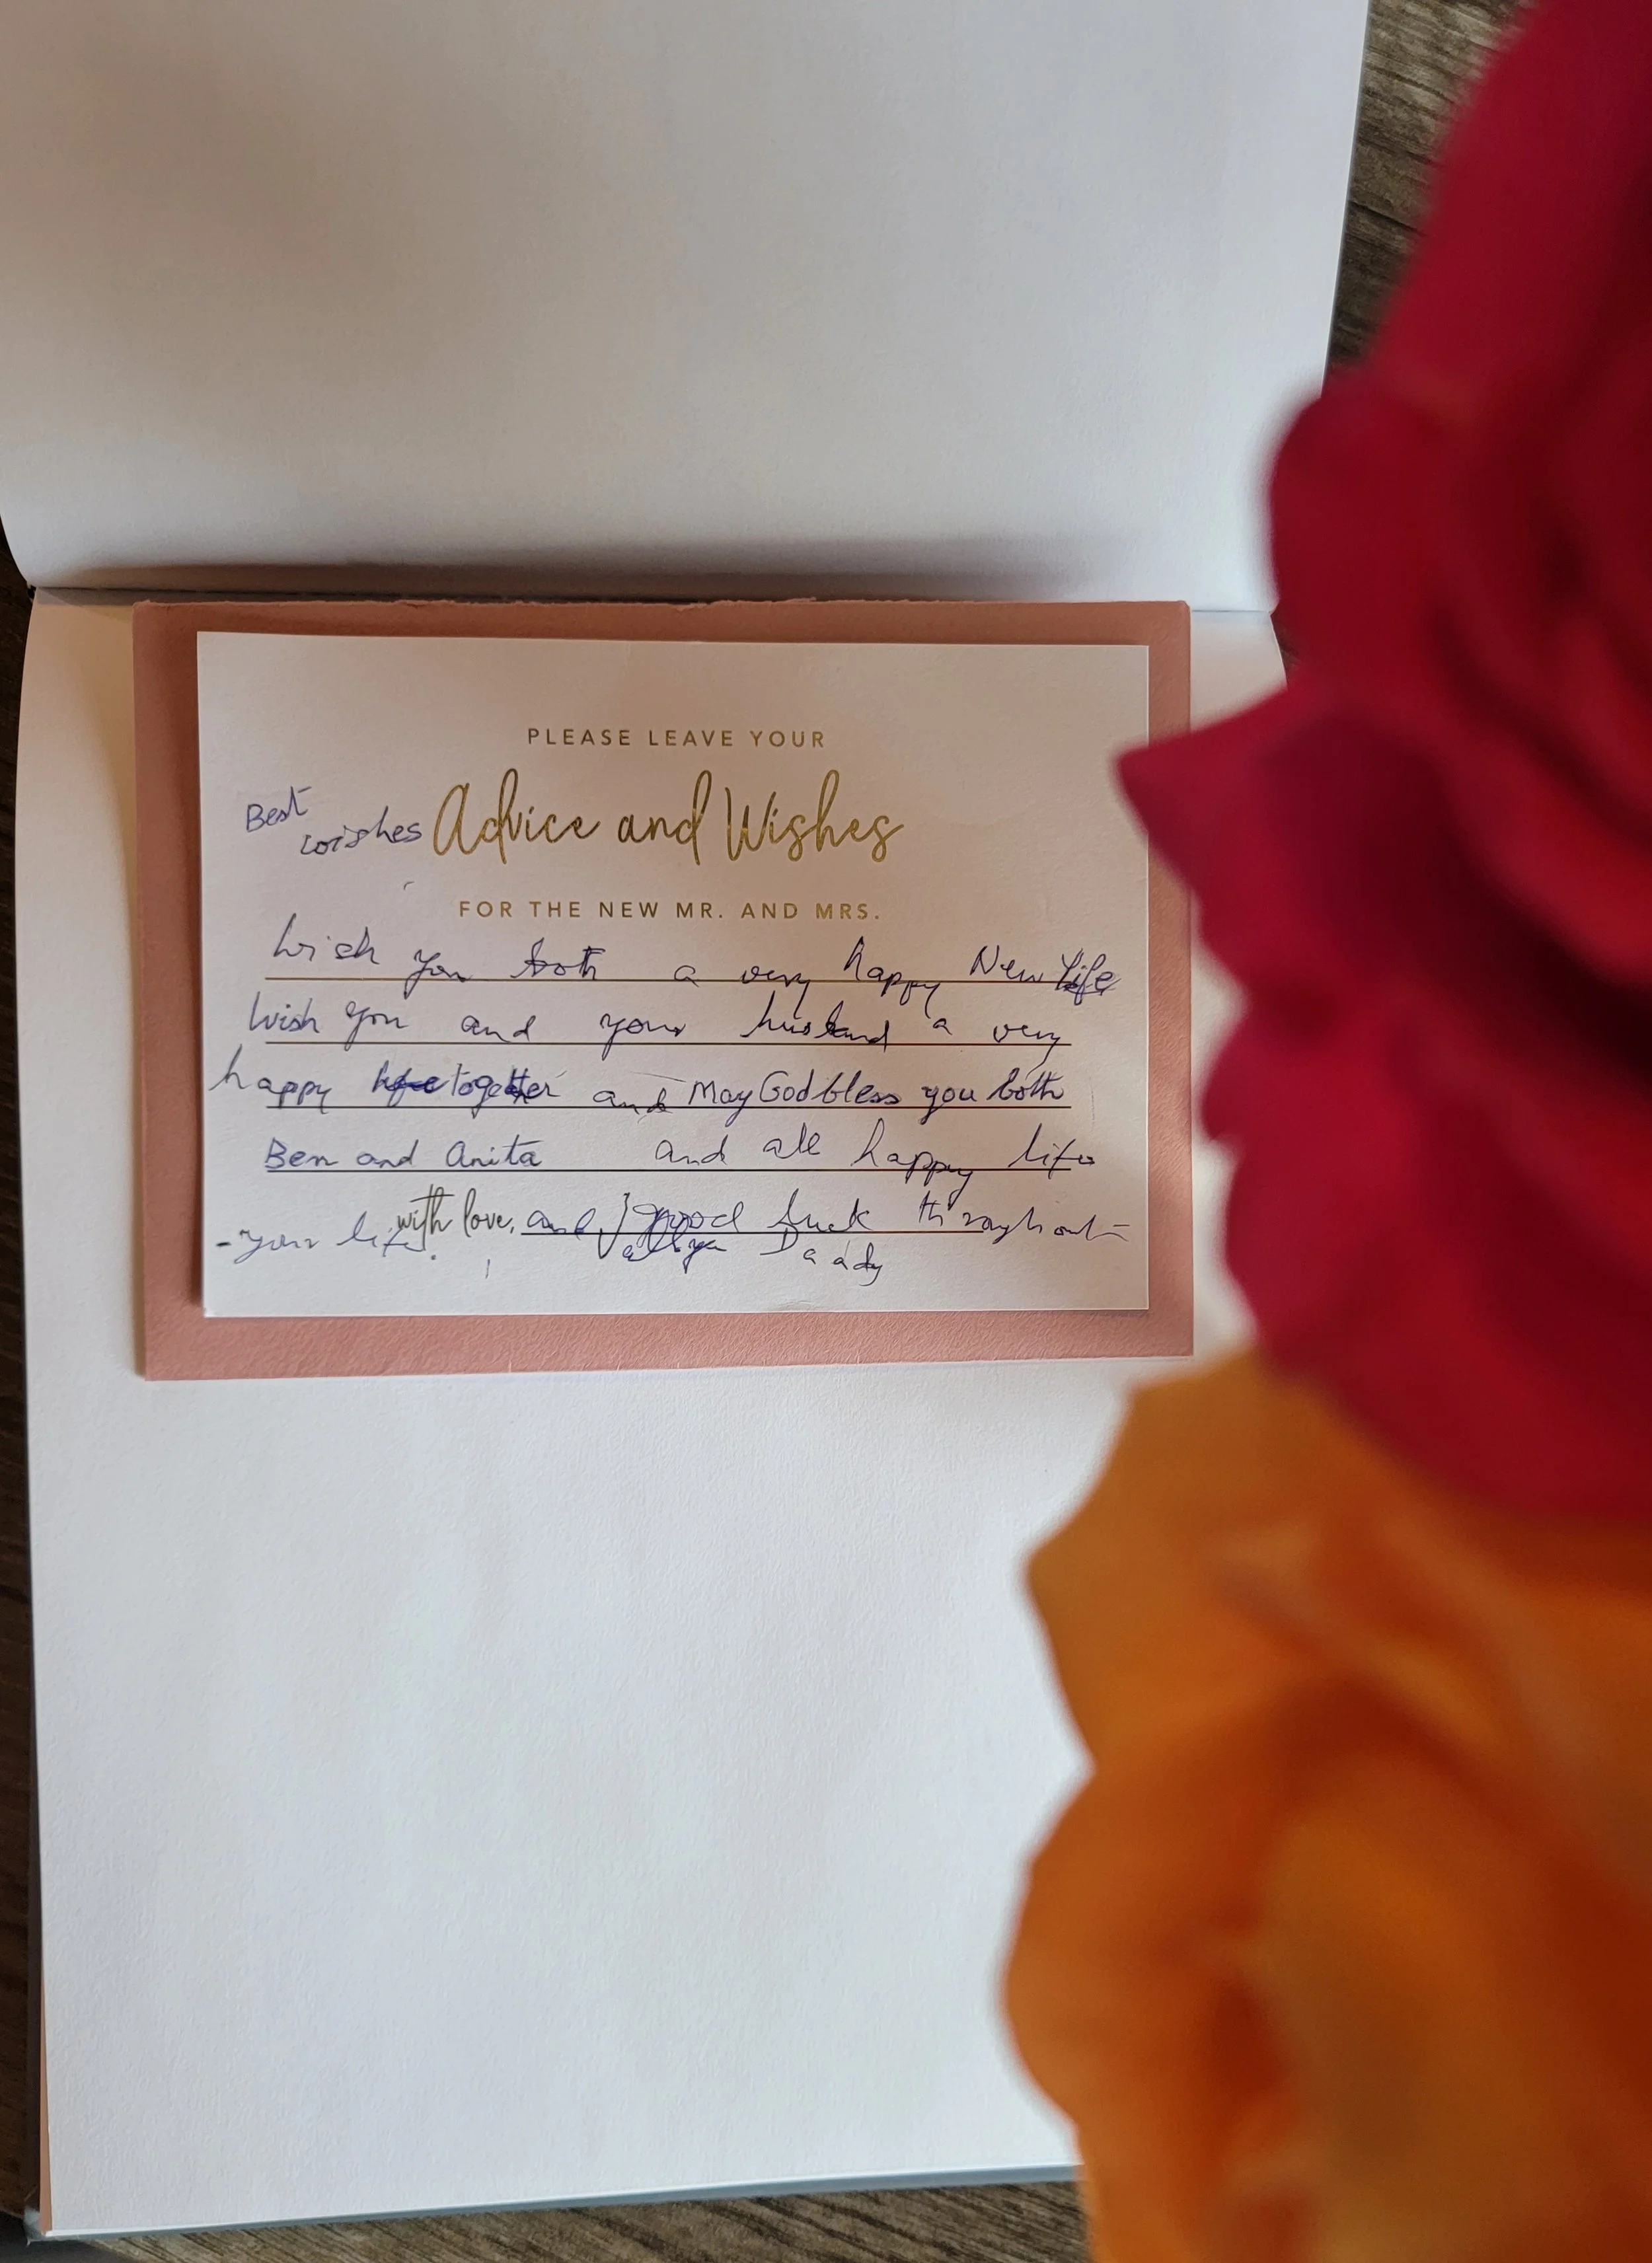 PLEASE LEAVE YOUR
Best
wishes Advice and Wishes
FOR THE NEW MR. AND MRS.
Wish you both a very happy New life
Wish you and your husband a very
happy together and May God bless you both
Ben and Anita and all happy life
with love, and good luck throughout
- your life.
Daady